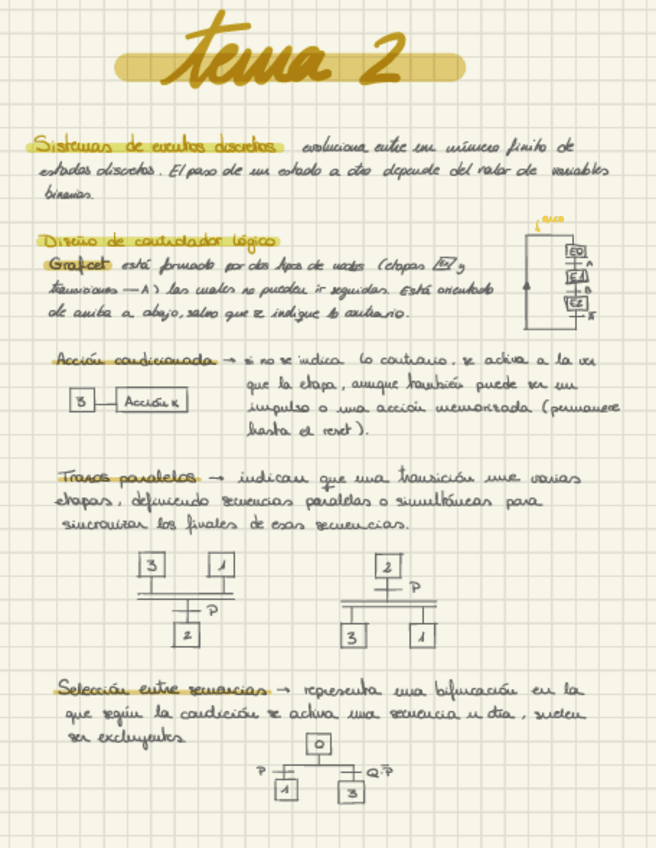 tema 2
Sistemas de eventos discretos evoluciona entre un número finito de
estados discretos. El paso de un estado a otro depende del valor de variables
binarias.
arco
Diseño de controlador lógico
Grafcet está formado por dos tipos de nodos (etapas Ex y
transiciones —A) las cuales no pueden ir seguidas. Está orientado
de arriba a abajo, salvo que se indique lo contrario.
E0
A
E1
B
E2
A̅
Acción condicionada → si no se indica lo contrario, se activa a la vez
que la etapa, aunque también puede ser un
impulso o una acción memorizada (permanece
hasta el reset).
3 Acción K
Trazos paralelos → indican que una transición une varias
etapas, definiendo secuencias paralelas o simultáneas para
sincronizar los finales de esas secuencias.
3 1
P
2
2
P
3 1
Selección entre secuencias → representa una bifurcación en la
que según la condición se activa una secuencia u otra, suelen
ser excluyentes
0
P Q·P̅
1 3